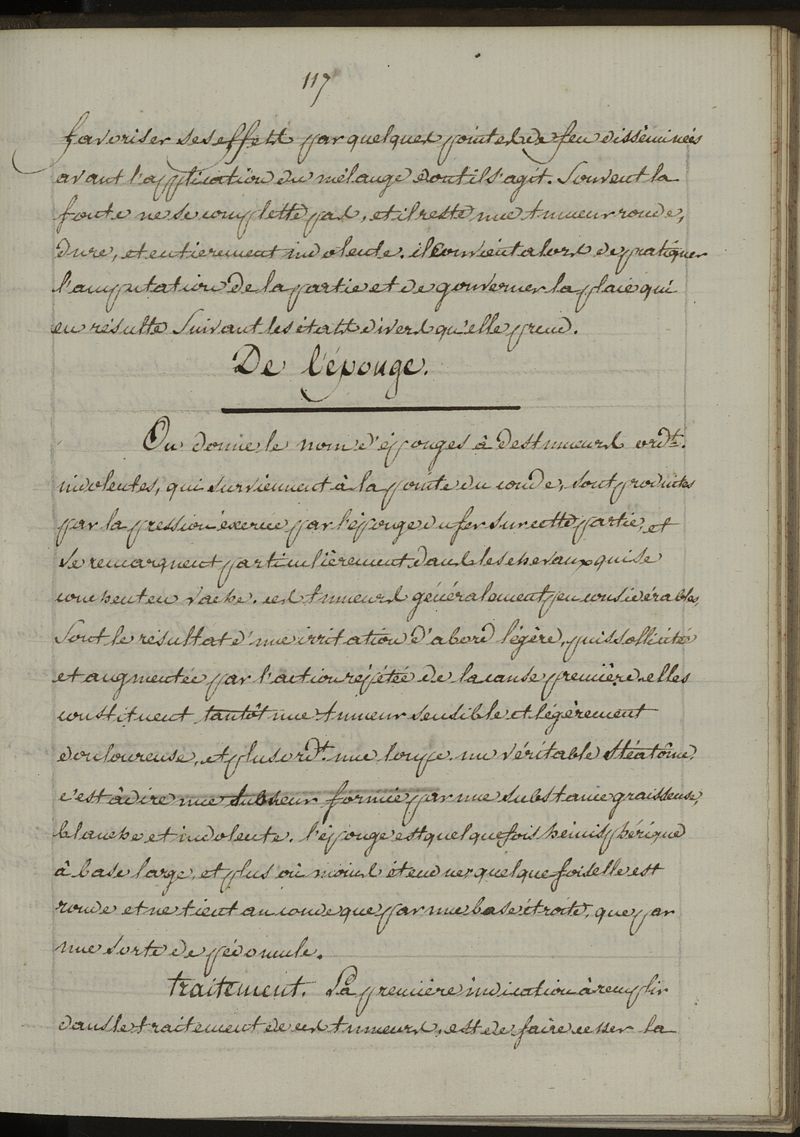 117
favoriser ses effets par quelques pointes de feu disséminées
avant l'application du mélange dont il s'agit. Souvent la
fonte ne se complette pas, et il reste une tumeur ronde,
dure, et entierement indolente. il convient alors de pratiquer
l'amputation de la partie et de gouverner la plaie qui
en résulte Suivant les états divers qu'elle prend.
De l'éponge.
On donne le nom d'éponges à des tumeurs ord.t
indolentes, qui surviennent à la pointe du coude, sont produites
par la pression exercée par l'éponge du fer sur cette partie, et
se remarquent particulièrement dans les chevaux qui se
couchent en vache. ces tumeurs généralement peu considérables,
Sont le résultat d'une irritation d'abord légère, puis sollicitée
et augmentée par l'action répétée de la cause première. elles
constituent tantôt une tumeur sensible et légèrement
douloureuse, et plus ord.t une loupe, un véritable stéatôme,
c'est à dire une tumeur formée par une substance graisseuse,
blanche et indolente. l'éponge est quelque fois hémisphérique
à base large, et plus où moins étendue, quelque fois elle est
ronde et ne tient au coude que par une base étroite, que par
une sorte de pédoncule.
traitement. La première indication à remplir
dans le traitement de ces tumeurs, est de faire cesser la